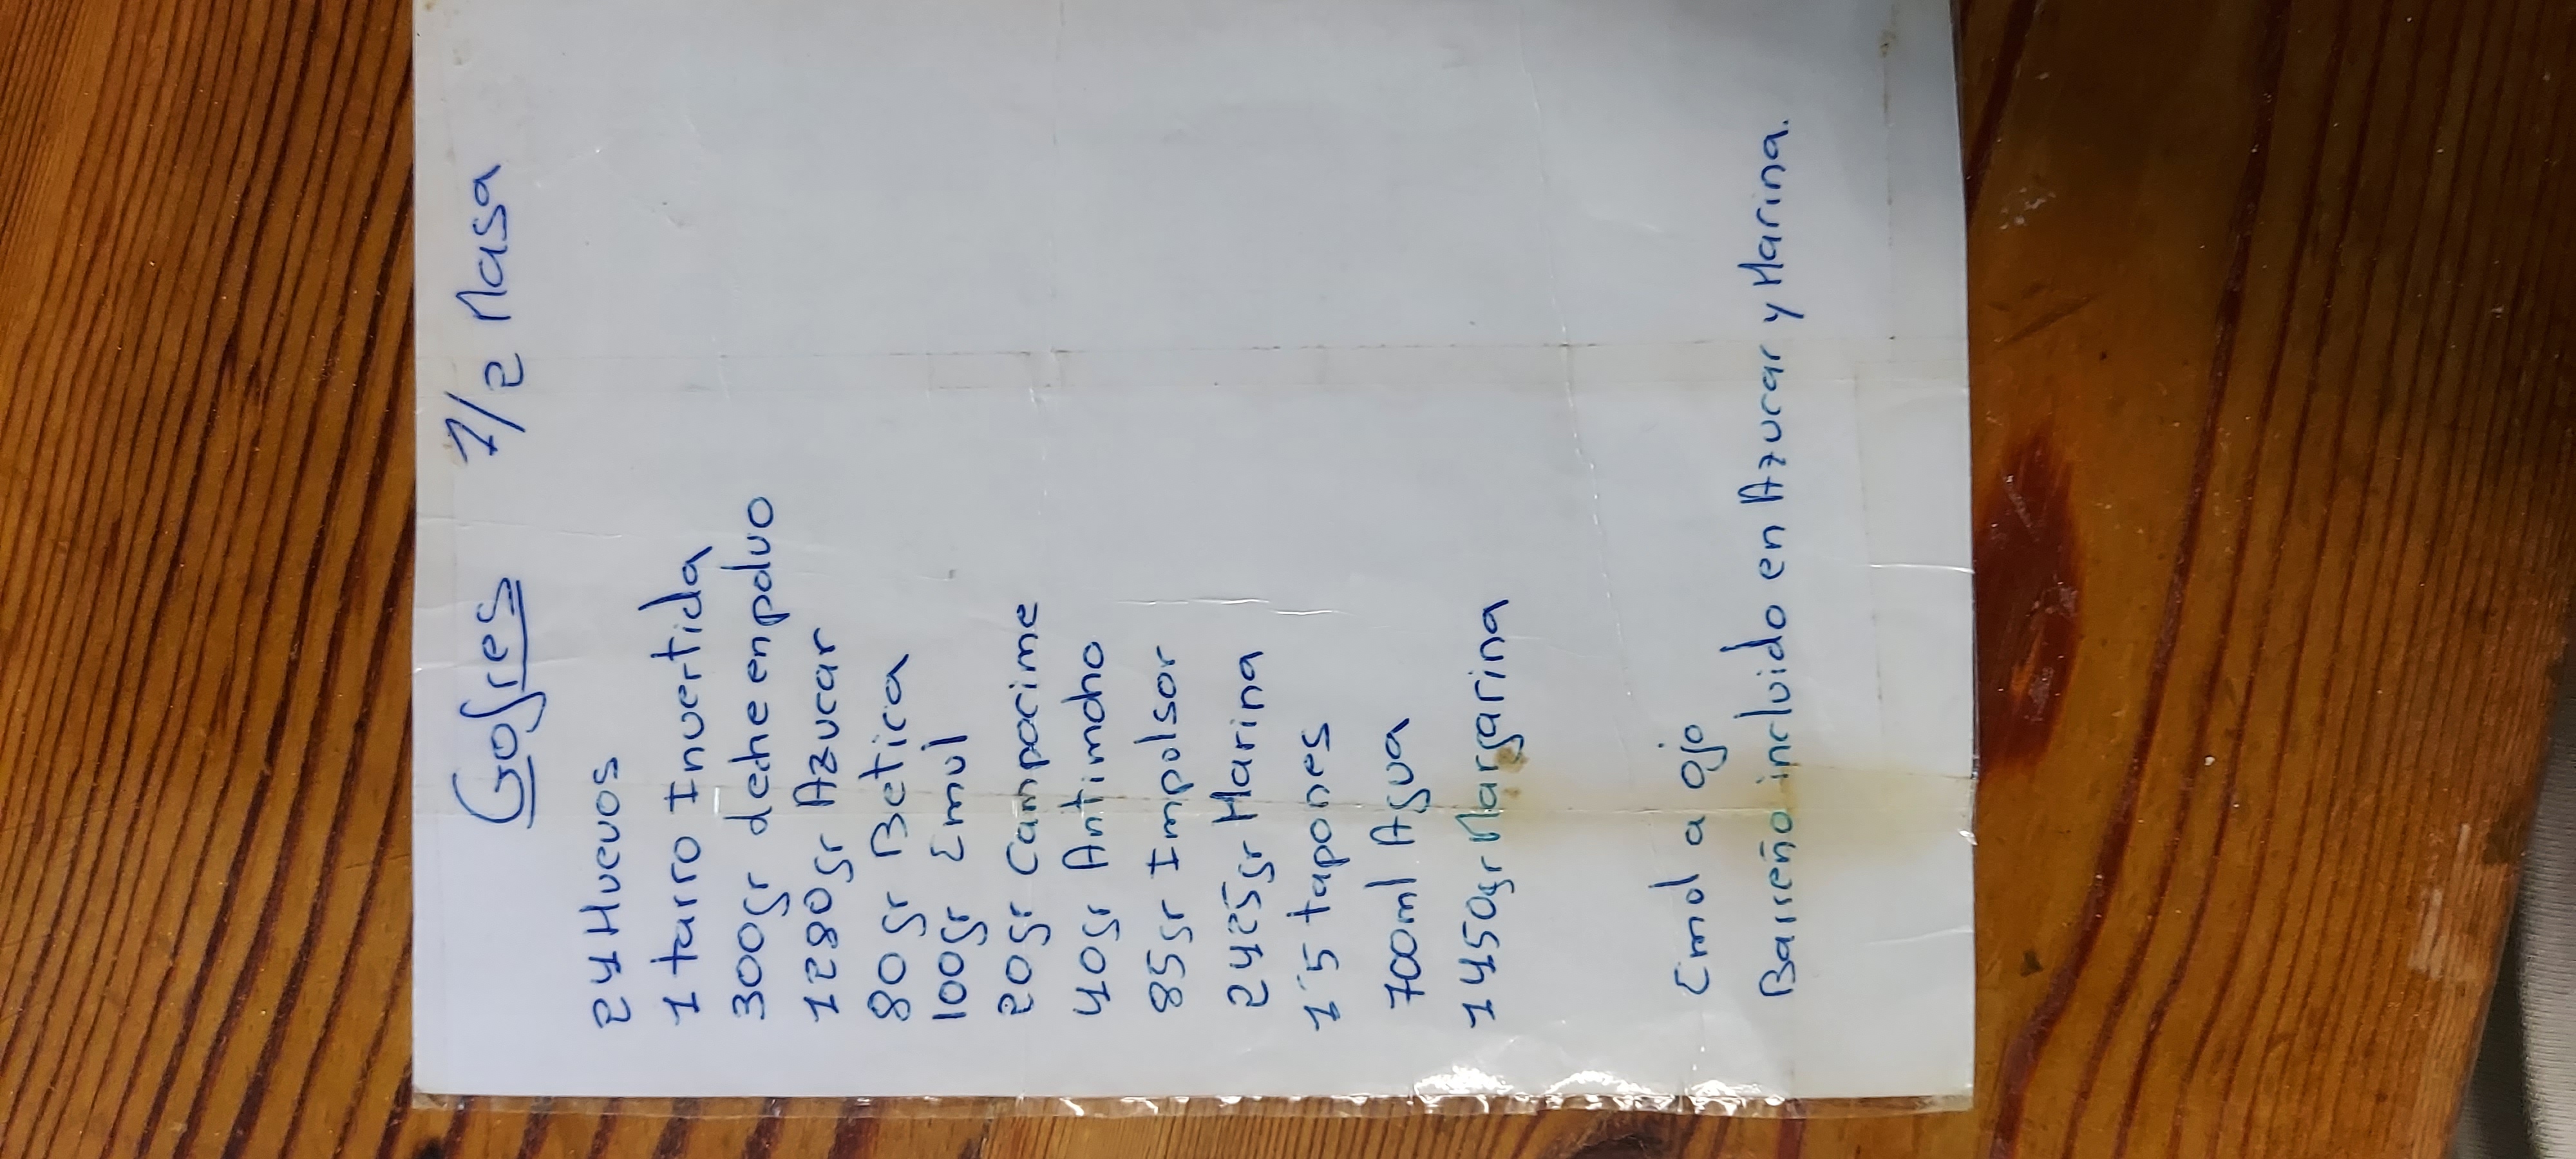 Gofres 1/2 Masa
24 Huevos
1 tarro Invertida
300gr deche en pdvo
1280gr Azucar
80gr Betica
100gr Emul
20gr Campocime
40gr Antimoho
85gr Impolsor
2425gr Harina
1'5 tapones
700ml Agua
1450gr Margarina
Emol a ojo
Barreño incluido en Azucar y Harina.